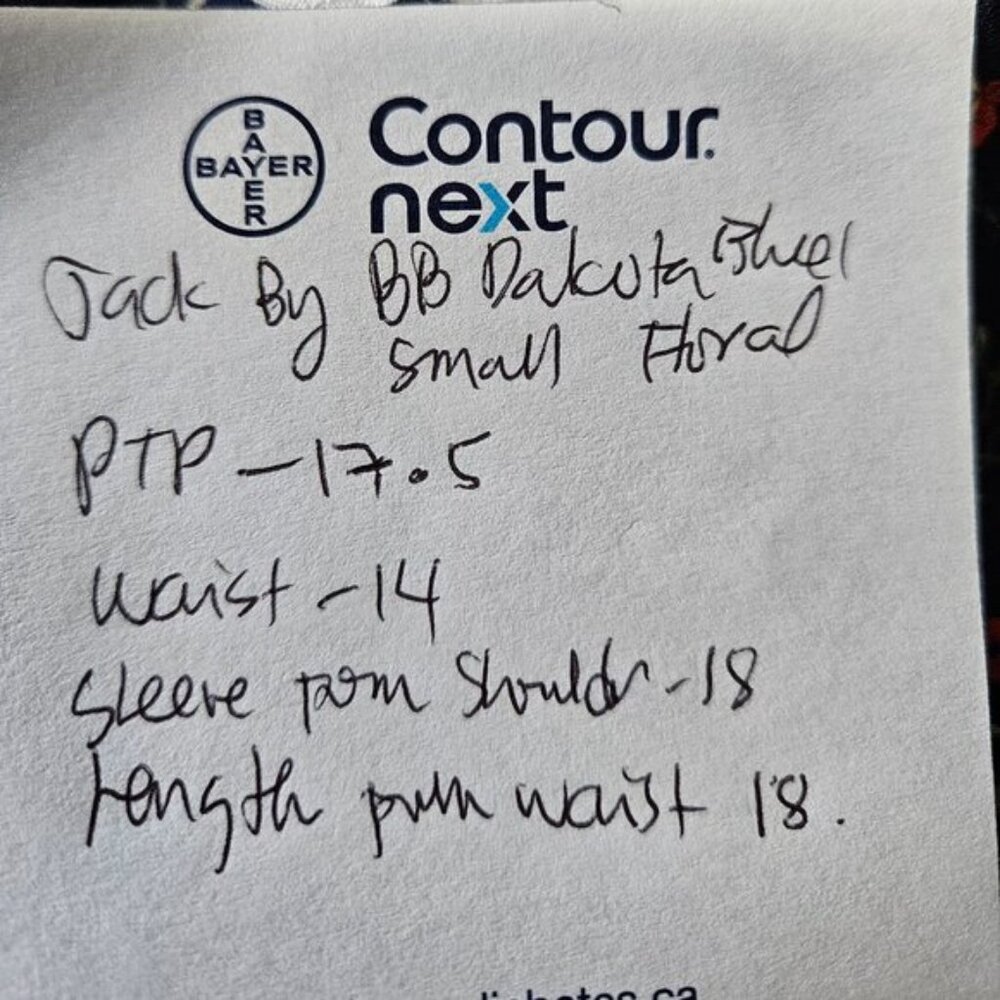 BAYER
BAYER
Contour
next
Jack By BB Dakota Blue
small Floral
PTP - 17.5
Waist - 14
Sleeve from Shouldr - 18
Length from waist 18.
diabetes.ca